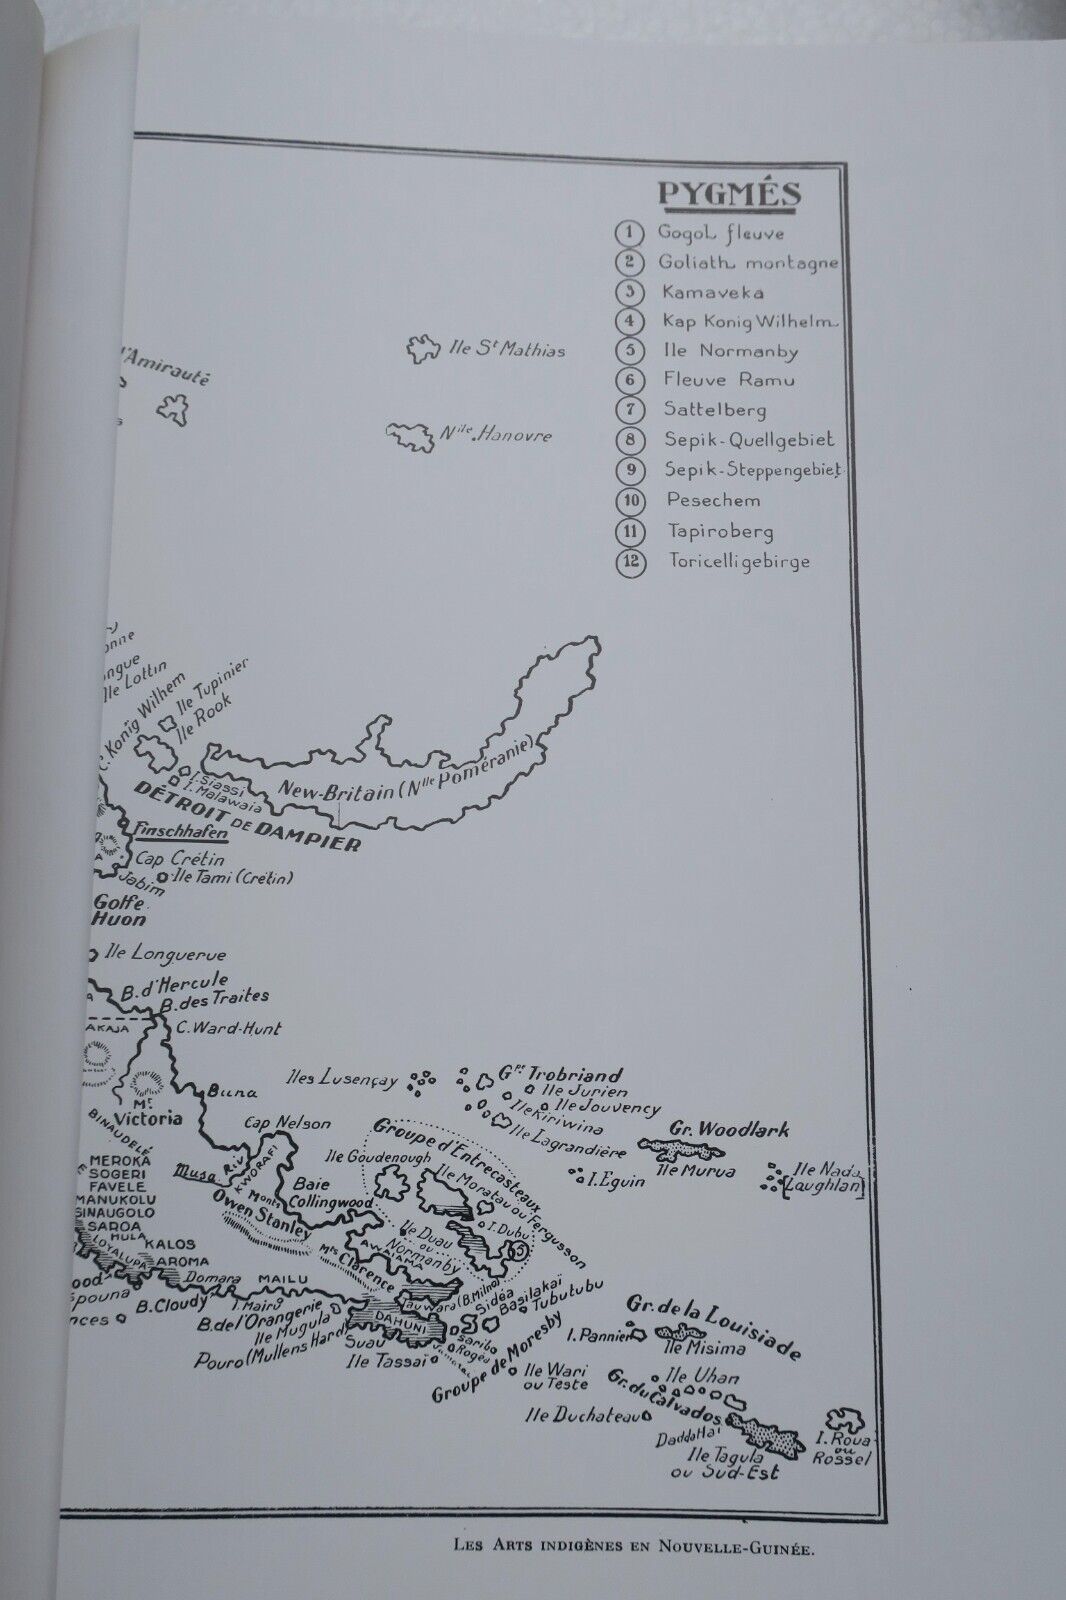 PYGMÉS
1 Gogol fleuve
2 Goliath montagne
3 Kamaveka
4 Kap Konig Wilhelm
5 Ile Normanby
6 Fleuve Ramu
7 Sattelberg
8 Sepik-Quellgebiet
9 Sepik-Steppengebiet
10 Pesechem
11 Tapiroberg
12 Toricelligebirge
Ile St Mathias
l'Amirauté
Nlle. Hanovre
Ile Lottin
C. Konig Wilhem
Ile Tupinier
Ile Rook
I. Siassi
I. Malawaia
New-Britain (Nlle Poméranie)
DÉTROIT DE DAMPIER
Finschhafen
Cap Crétin
Ile Tami (Crétin)
Jabim
Golfe
Huon
Ile Longuerue
B. d'Hercule
B. des Traites
AKAJA
C. Ward-Hunt
Mt.
Victoria
Buna
BINAUDELÉ
Iles Lusençay
Gpe Trobriand
Ile Jurien
Ile Jouvency
Ile Kiriwina
Ile Lagrandière
Gr. Woodlark
Ile Murua
I. Eguin
Ile Nada
[Loughlan]
Cap Nelson
Groupe d'Entrecasteaux
Ile Goudenough
Ile Moratau ou Fergusson
I. Dubu
5
Ile Duau
ou
Normanby
Musa
Riv
KWORAFI
Baie
Collingwood
Monts
Owen Stanley
Mts Clarence
AWAIAMA
MEROKA
SOGERI
FAVELE
MANUKOLU
SINAUGOLO
SAROA
HULA
KALOS
LOYALUPA
AROMA
Domara
MAILU
B. Cloudy
I. Mairu
B. de l'Orangerie
Ile Mugula
Pouro (Mullens Hard)
DAHUNI
Suau
Ile Tassaï
Tauwara (B. Milne)
Sidéa
Basilakaï
Tubutubu
Sariba
Rogea
Groupe de Moresby
Ile Wari
ou Teste
Gr. de la Louisiade
I. Pannier
Ile Misima
Ile Uhan
Gr. du Calvados
Ile Duchateau
Daddahaï
Ile Tagula
ou Sud-Est
I. Roua
ou
Rossel
LES ARTS INDIGÈNES EN NOUVELLE-GUINÉE.